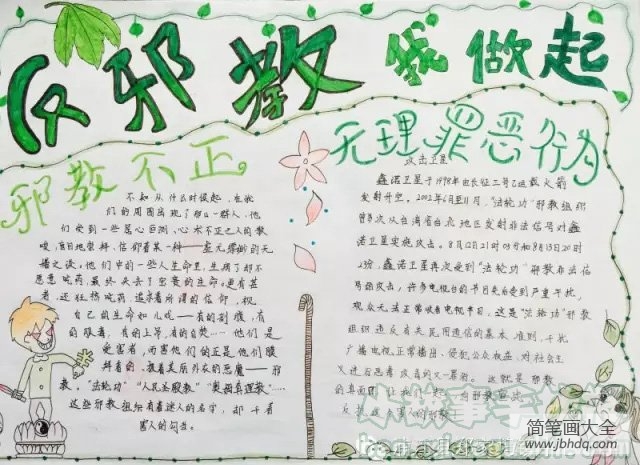 反邪教 我做起
邪教不正
不知从什么时候起，在我
们的周围出现了那么一群人，他
们受到一些居心叵测、心术不正之人的教
唆，盲目地崇拜、信仰着某一种——虚无缥缈的无
稽之谈。他们中的一些人生命里，生病了却不
愿意吃药，最终失去了宝贵的生命。更有甚
者，还狂热地追求着所谓的信仰，视
自己的生命如儿戏——有的剖腹，有
的跳着，有的上吊，有的自焚……他们是
受害者，而害他们的正是他们膜
拜着的、披着美丽外衣的恶魔——邪
教。“法轮功”“人民圣殿教”“奥姆真理教”……
这些邪教组织有着迷人的名字，却干着
害人的勾当。
无理罪恶行为
攻击卫星
鑫诺卫星于1998年由长征三号乙运载火箭
发射升空。2002年6月至11月，“法轮功”邪教组织
曾多次从台湾省台北地区发射非法信号对鑫
诺卫星实施攻击。8月12日21时03分和9月13日20时
23分，鑫诺卫星再次受到“法轮功”邪教非法信
号的攻击，许多电视台的节目先后受到严重干扰，
观众无法正常收看电视节目。这是“法轮功”邪教
组织违反有关民用通信的基本准则，干扰
广播电视正常播出、侵犯公众权益、对社会主
义进行恶毒攻击的又一罪行。这就是邪教
的真面目，让我们一起
简笔画大全
www.jbhdq.com